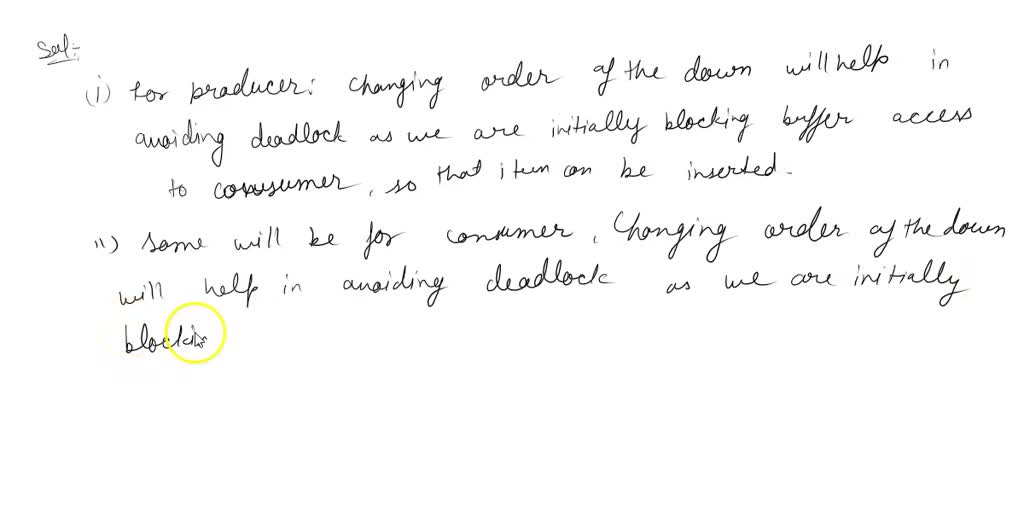 Sol:-
(i) for producer: Changing order of the down will help in
avoiding deadlock as we are initially blocking buffer access
to consumer, so that item can be inserted.
ii) Same will be for consumer, Changing order of the down
will help in avoiding deadlock as we are initially
blocki